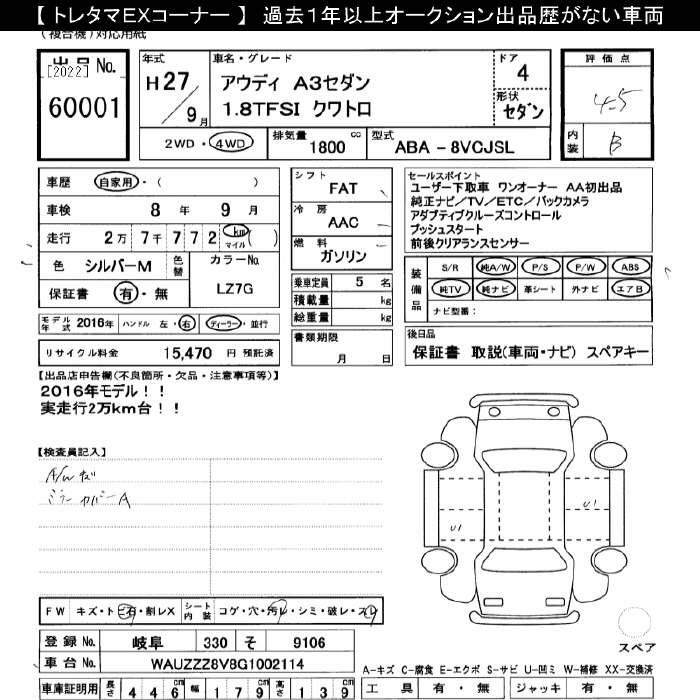 【トレタマEXコーナー】 過去1年以上オークション出品歴がない車両
(複合機)対応用紙
出品No.
[2022]
60001
年式
H27
/9月
車名・グレード
アウディ A3セダン
1.8TFSI クワトロ
ドア
4
形状
セダン
評価点
4.5
内装
B
2WD・4WD
排気量 1800 cc
型式 ABA-8VCJSL
車歴 自家用・( )
車検 8年 9月
走行 2万7千772 km マイル ( )
色 シルバーM
色替
カラーNo.
LZ7G
保証書 有・無
シフト
FAT
冷房
AAC
燃料
ガソリン
乗車定員 5 名
積載量 kg
総重量 kg
書類期限
月 日
セールスポイント
ユーザー下取車 ワンオーナー AA初出品
純正ナビ/TV/ETC/バックカメラ
アダプティブクルーズコントロール
プッシュスタート
前後クリアランスセンサー
装備品
S/R 純A/W P/S P/W ABS
純TV 純ナビ 革シート 外ナビ エアB
ナビ型番:
モデル年式 2016年 ハンドル 左・右 ディーラー・並行
リサイクル料金 15,470 円 預託済
後日品
保証書 取説(車両・ナビ) スペアキー
【出品店申告欄(不良箇所・欠品・注意事項等)】
2016年モデル!!
実走行2万km台!!
【検査員記入】
ミラーカバーA
U1
U1
FW キズ・トビ石・割レX
シート内装 コゲ・穴・汚レ・シミ・破レ・スレ
登録No. 岐阜 330 そ 9106
車台No. WAUZZZ8V8G1002114
スペア
A-キズ C-腐食 E-エクボ S-サビ U-凹ミ W-補修 XX-交換済
車庫証明用 長さ 446 cm 幅 179 cm 高さ 139 cm
工具 有・無 ジャッキ 有・無